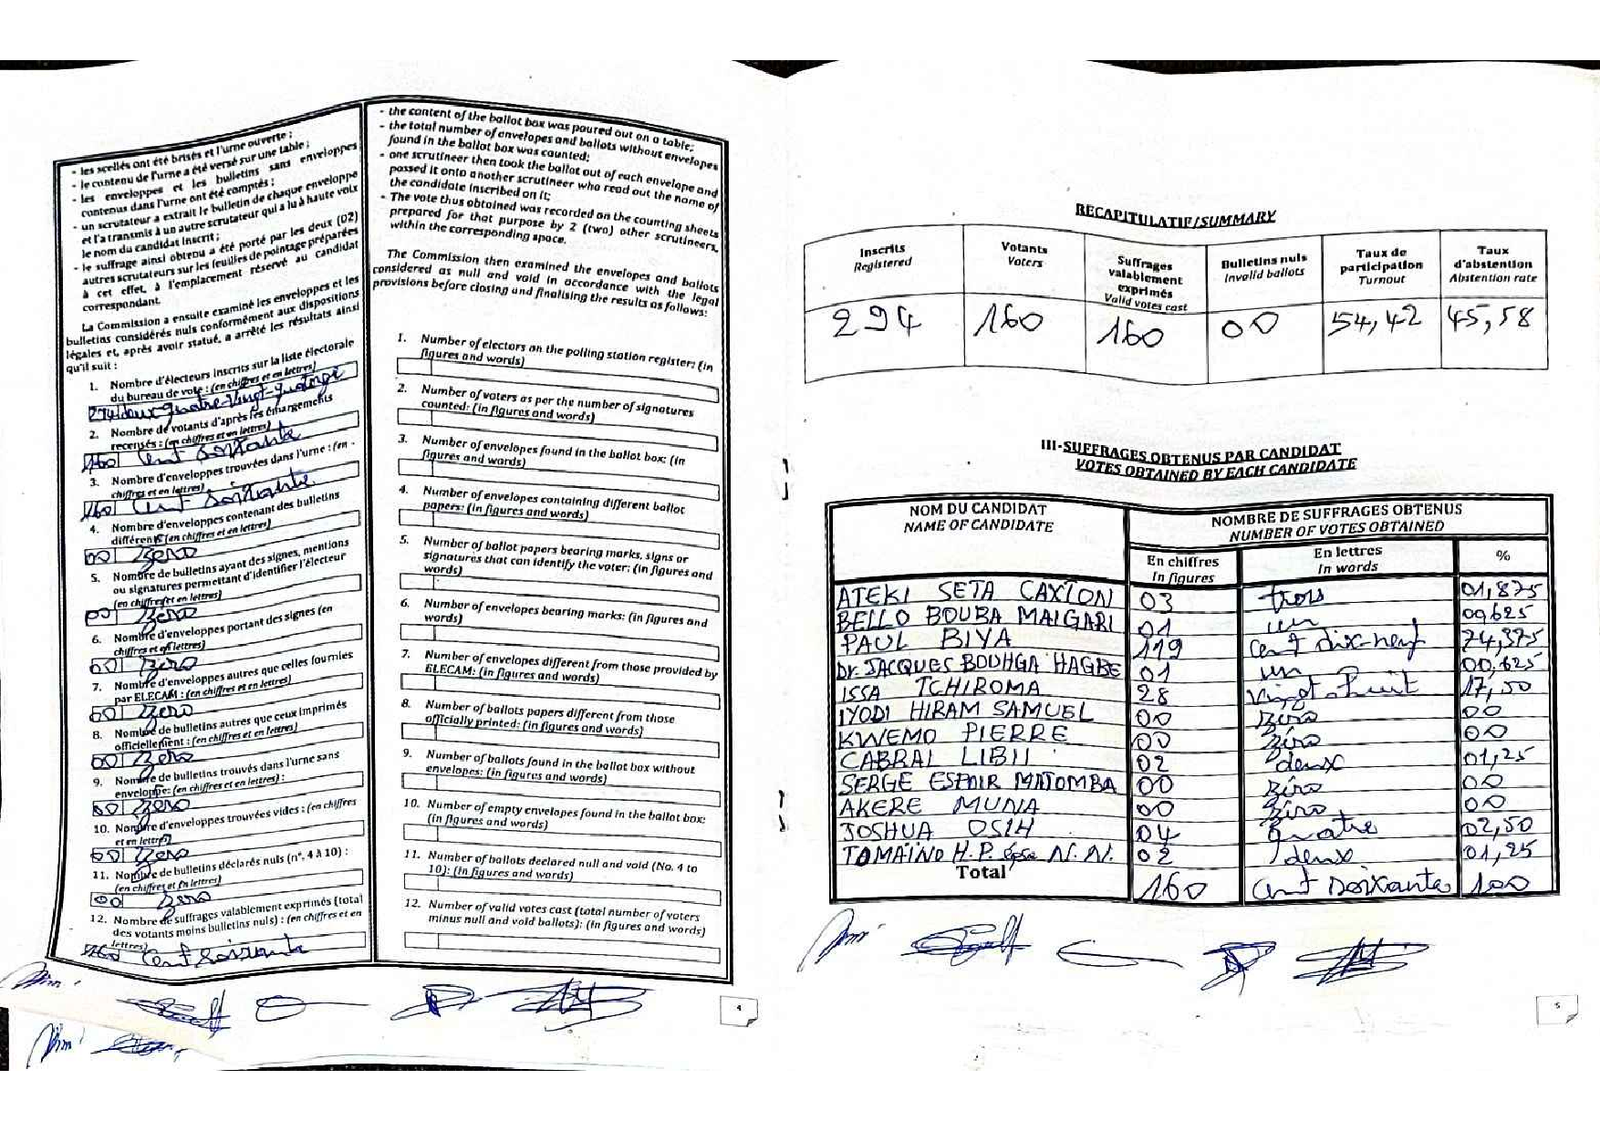 - les scellés ont été brisés et l'urne ouverte ;
- le contenu de l'urne a été versé sur une table ;
- les enveloppes et les bulletins sans enveloppes
contenus dans l'urne ont été comptés ;
- un scrutateur a extrait le bulletin de chaque enveloppe
et l'a transmis à un autre scrutateur qui a lu à haute voix
le nom du candidat inscrit ;
- le suffrage ainsi obtenu a été porté par les deux (02)
autres scrutateurs sur les feuilles de pointage préparées
à cet effet, à l'emplacement réservé au candidat
correspondant.
La Commission a ensuite examiné les enveloppes et les
bulletins considérés nuls conformément aux dispositions
légales et, après avoir statué, a arrêté les résultats ainsi
qu'il suit :
1. Nombre d'électeurs inscrits sur la liste électorale
du bureau de vote : (en chiffres et en lettres)
294 deux quatre-vingt-quatorze
2. Nombre de votants d'après les émargements
recensés : (en chiffres et en lettres)
160 Cent Soixante
3. Nombre d'enveloppes trouvées dans l'urne : (en
chiffres et en lettres)
160 Cent Soixante
4. Nombre d'enveloppes contenant des bulletins
différents (en chiffres et en lettres)
00 Zero
5. Nombre de bulletins ayant des signes, mentions
ou signatures permettant d'identifier l'électeur
(en chiffres et en lettres)
00 Zero
6. Nombre d'enveloppes portant des signes (en
chiffres et en lettres)
00 Zero
7. Nombre d'enveloppes autres que celles fournies
par ELECAM : (en chiffres et en lettres)
00 Zero
8. Nombre de bulletins autres que ceux imprimés
officiellement : (en chiffres et en lettres)
00 Zero
9. Nombre de bulletins trouvés dans l'urne sans
enveloppe: (en chiffres et en lettres) :
00 Zero
10. Nombre d'enveloppes trouvées vides : (en chiffres
et en lettres)
00 Zero
11. Nombre de bulletins déclarés nuls (n°. 4 à 10) :
(en chiffres et en lettres)
00 Zero
12. Nombre de suffrages valablement exprimés (total
des votants moins bulletins nuls) : (en chiffres et en
lettres)
160 Cent Soixante
- the content of the ballot box was poured out on a table;
- the total number of envelopes and ballots without envelopes
found in the ballot box was counted;
- one scrutineer then took the ballot out of each envelope and
passed it onto another scrutineer who read out the name of
the candidate inscribed on it;
- The vote thus obtained was recorded on the counting sheets
prepared for that purpose by 2 (two) other scrutineers,
within the corresponding space.
The Commission then examined the envelopes and ballots
considered as null and void in accordance with the legal
provisions before closing and finalising the results as follows:
1. Number of electors on the polling station register: (in
figures and words)
2. Number of voters as per the number of signatures
counted: (in figures and words)
3. Number of envelopes found in the ballot box: (in
figures and words)
4. Number of envelopes containing different ballot
papers: (in figures and words)
5. Number of ballot papers bearing marks, signs or
signatures that can identify the voter: (in figures and
words)
6. Number of envelopes bearing marks: (in figures and
words)
7. Number of envelopes different from those provided by
ELECAM: (in figures and words)
8. Number of ballots papers different from those
officially printed: (in figures and words)
9. Number of ballots found in the ballot box without
envelopes: (in figures and words)
10. Number of empty envelopes found in the ballot box:
(in figures and words)
11. Number of ballots declared null and void (No. 4 to
10): (in figures and words)
12. Number of valid votes cast (total number of voters
minus null and void ballots): (in figures and words)
4
RÉCAPITULATIF/SUMMARY
Inscrits Registered | Votants Voters | Suffrages valablement exprimés Valid votes cast | Bulletins nuls Invalid ballots | Taux de participation Turnout | Taux d'abstention Abstention rate
294 | 160 | 160 | 00 | 54,42 | 45,58
III-SUFFRAGES OBTENUS PAR CANDIDAT
VOTES OBTAINED BY EACH CANDIDATE
NOM DU CANDIDAT NAME OF CANDIDATE | NOMBRE DE SUFFRAGES OBTENUS NUMBER OF VOTES OBTAINED
En chiffres In figures | En lettres In words | %
ATEKI SETA CAXTON | 03 | trois | 01,875
BELLO BOUBA MAIGARI | 01 | un | 00,625
PAUL BIYA | 119 | Cent dix-neuf | 74,375
Dr. JACQUES BOUHGA HAGBE | 01 | un | 00,625
ISSA TCHIROMA | 28 | vingt-huit | 17,50
IYODI HIRAM SAMUEL | 00 | Zéro | 00
KWEMO PIERRE | 00 | Zéro | 00
CABRAL LIBII | 02 | deux | 01,25
SERGE ESPOIR MATOMBA | 00 | Zéro | 00
AKERE MUNA | 00 | Zéro | 00
JOSHUA OSIH | 04 | quatre | 02,50
TOMAÏNO H.P. épse N.N. | 02 | deux | 01,25
Total | 160 | Cent Soixante | 100
5